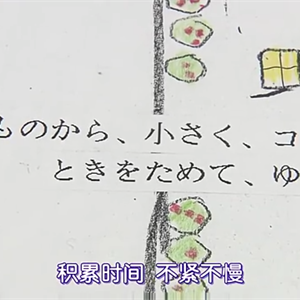 ものから、小さく、コ
ときをためて、ゆ
积累时间 不紧不慢